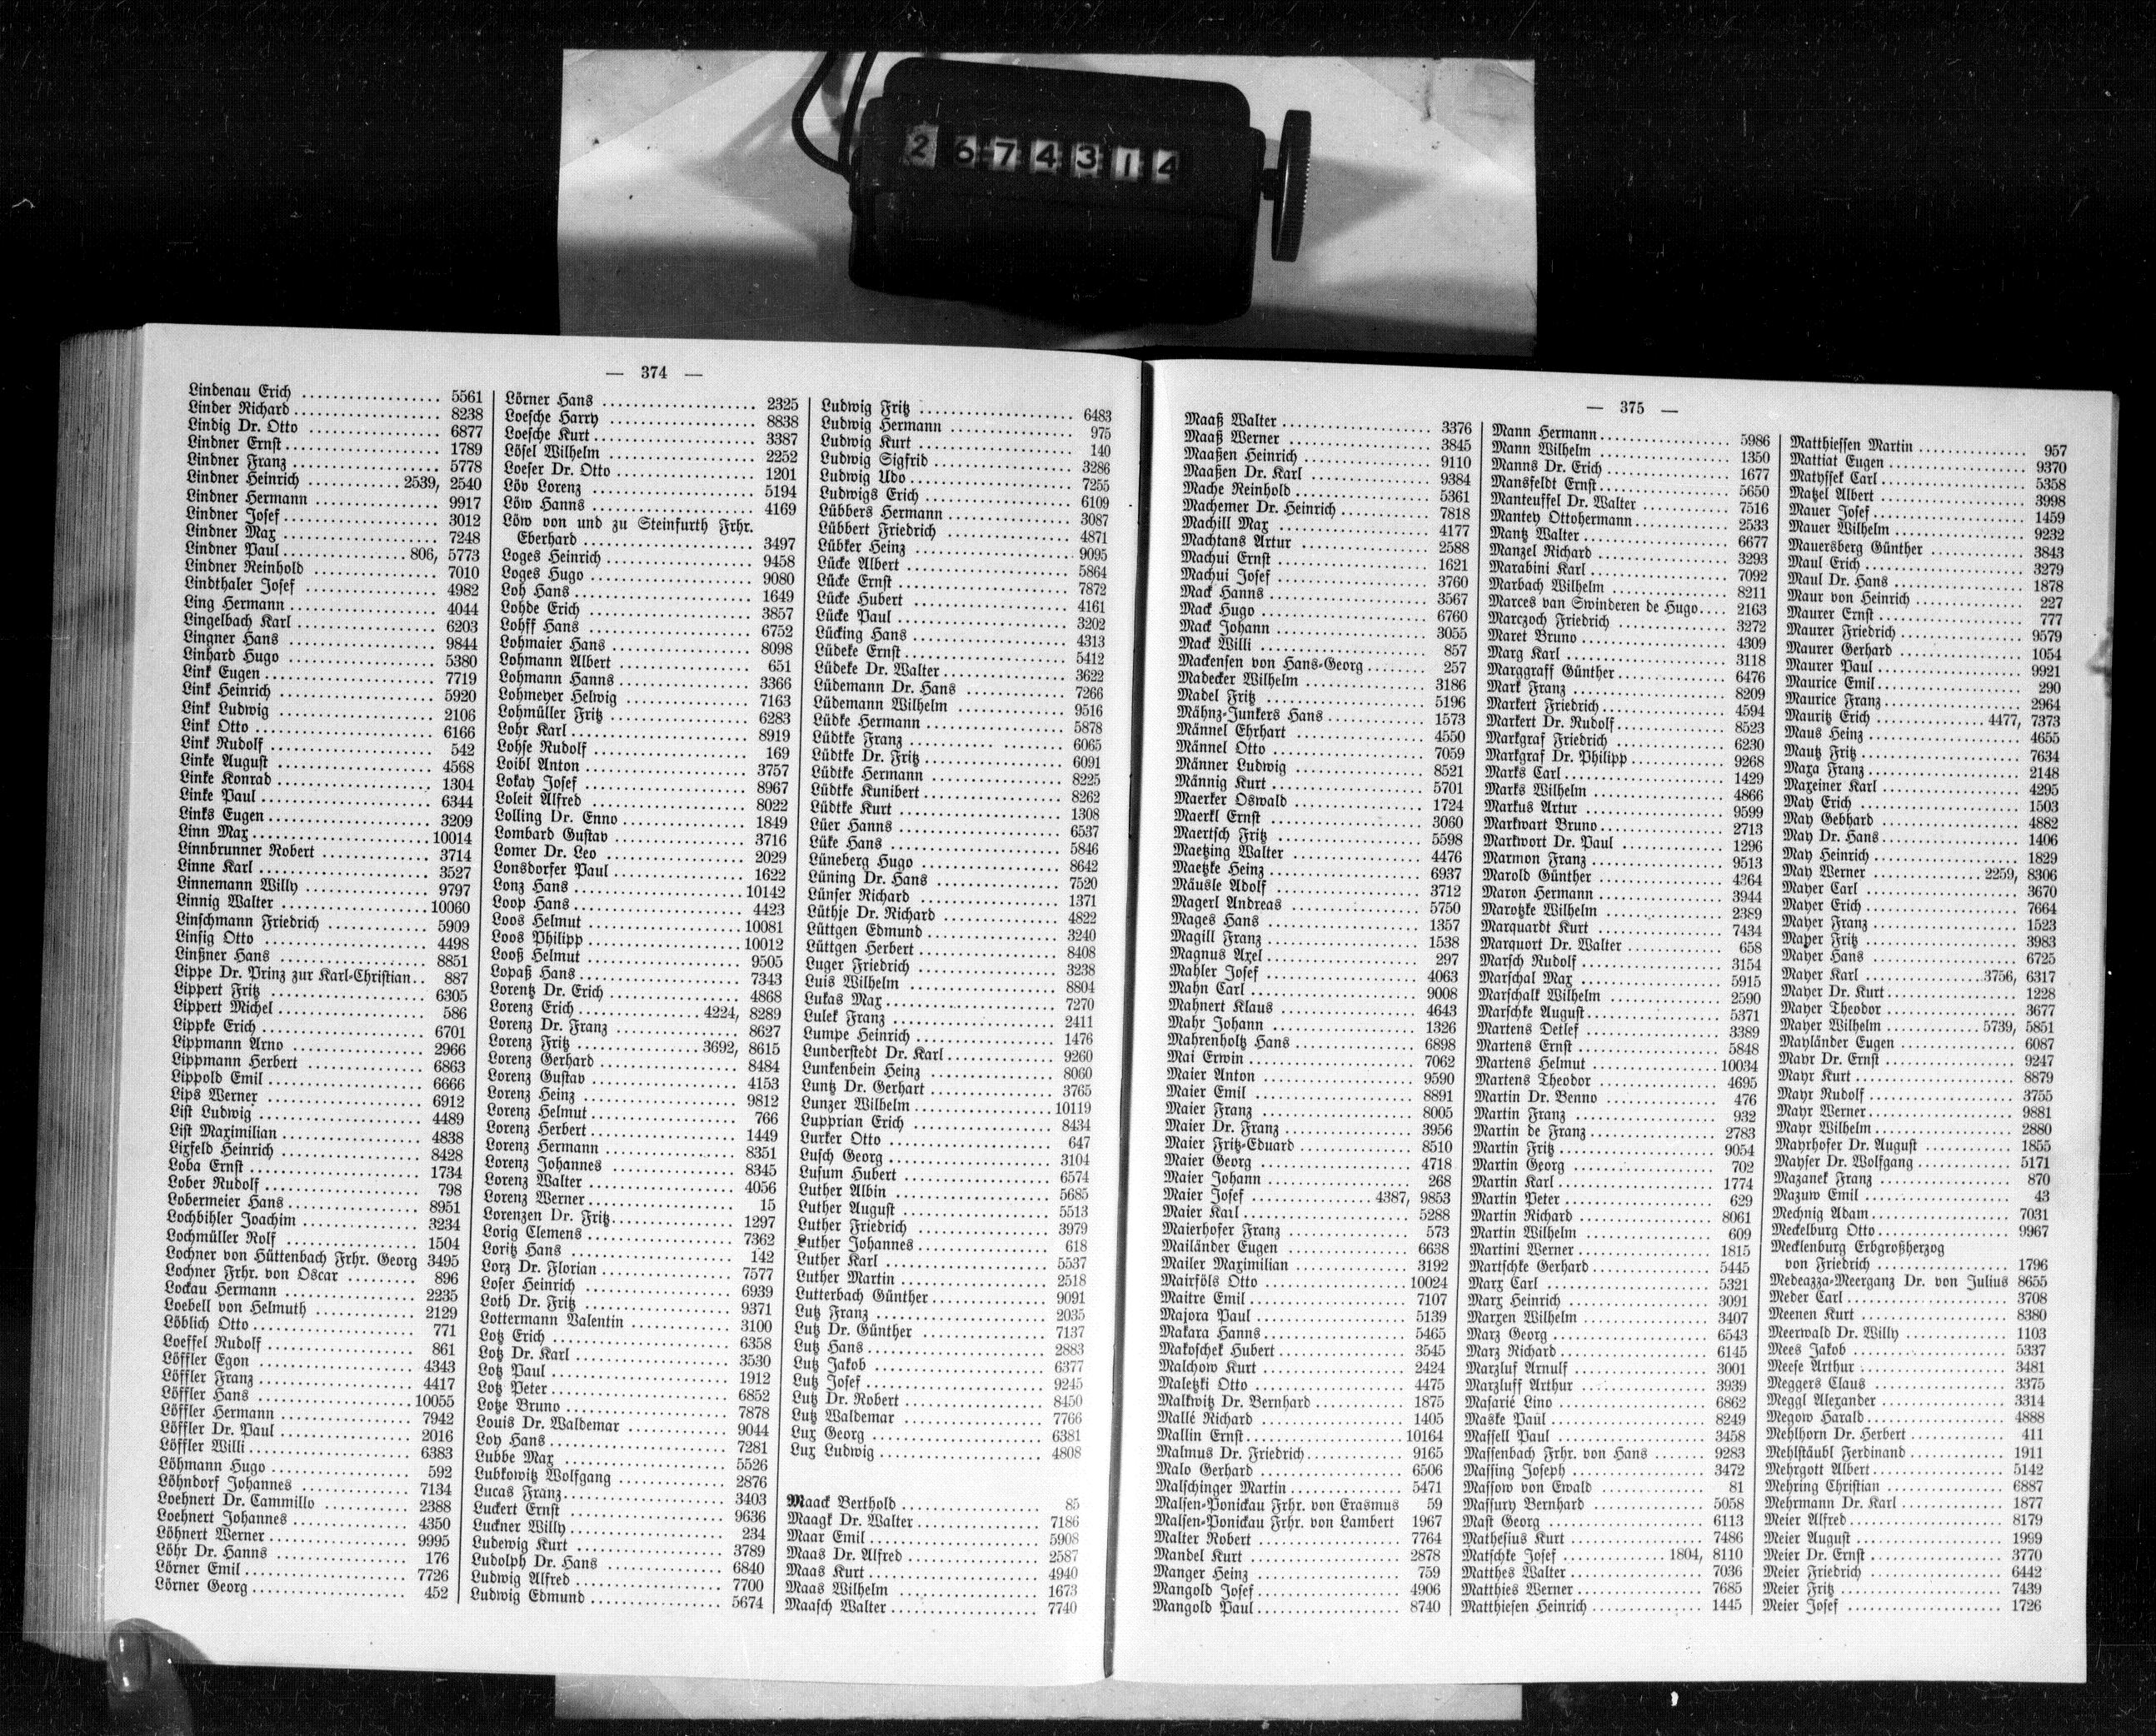 2674314
— 374 —
Lindenau Erich 5561
Linder Richard 8238
Lindig Dr. Otto 6877
Lindner Ernst 1789
Lindner Franz 5778
Lindner Heinrich 2539, 2540
Lindner Hermann 9917
Lindner Josef 3012
Lindner Max 7248
Lindner Paul 806, 5773
Lindner Reinhold 7010
Lindthaler Josef 4982
Ling Hermann 4044
Lingelbach Karl 6203
Lingner Hans 9844
Linhard Hugo 5380
Link Eugen 7719
Link Heinrich 5920
Link Ludwig 2106
Link Otto 6166
Link Rudolf 542
Linke August 4568
Linke Konrad 1304
Linke Paul 6344
Links Eugen 3209
Linn Max 10014
Linnbrunner Robert 3714
Linne Karl 3527
Linnemann Willy 9797
Linnig Walter 10060
Linschmann Friedrich 5909
Linsig Otto 4498
Linßner Hans 8851
Lippe Dr. Prinz zur Karl-Christian 887
Lippert Fritz 6305
Lippert Michel 586
Lippke Erich 6701
Lippmann Arno 2966
Lippmann Herbert 6863
Lippold Emil 6666
Lips Werner 6912
List Ludwig 4489
List Maximilian 4838
Lixfeld Heinrich 8428
Loba Ernst 1734
Lober Rudolf 798
Lobermeier Hans 8951
Lochbihler Joachim 3234
Lochmüller Rolf 1504
Lochner von Hüttenbach Frhr. Georg 3495
Lochner Frhr. von Oscar 896
Lockau Hermann 2235
Loebell von Helmuth 2129
Löblich Otto 771
Loeffel Rudolf 861
Löffler Egon 4343
Löffler Franz 4417
Löffler Hans 10055
Löffler Hermann 7942
Löffler Dr. Paul 2016
Löffler Willi 6383
Löhmann Hugo 592
Löhndorf Johannes 7134
Loehnert Dr. Cammillo 2388
Loehnert Johannes 4350
Löhnert Werner 9995
Löhr Dr. Hanns 176
Lörner Emil 7726
Lörner Georg 452
Lörner Hans 2325
Loesche Harry 8838
Loesche Kurt 3387
Lösel Wilhelm 2252
Loeser Dr. Otto 1201
Löv Lorenz 5194
Löw Hanns 4169
Löw von und zu Steinfurth Frhr.
Eberhard 3497
Loges Heinrich 9458
Loges Hugo 9080
Loh Hans 1649
Lohde Erich 3857
Lohff Hans 6752
Lohmaier Hans 8098
Lohmann Albert 651
Lohmann Hanns 3366
Lohmeyer Helwig 7163
Lohmüller Fritz 6283
Lohr Karl 8919
Lohse Rudolf 169
Loibl Anton 3757
Lokay Josef 8967
Loleit Alfred 8022
Lolling Dr. Enno 1849
Lombard Gustav 3716
Lomer Dr. Leo 2029
Lonsdorfer Paul 1622
Lonz Hans 10142
Loop Hans 4423
Loos Helmut 10081
Loos Philipp 10012
Looß Helmut 9505
Lopaß Hans 7343
Lorentz Dr. Erich 4868
Lorenz Erich 4224, 8289
Lorenz Dr. Franz 8627
Lorenz Fritz 3692, 8615
Lorenz Gerhard 8484
Lorenz Gustav 4153
Lorenz Heinz 9812
Lorenz Helmut 766
Lorenz Herbert 1449
Lorenz Hermann 8351
Lorenz Johannes 8345
Lorenz Walter 4056
Lorenz Werner 15
Lorenzen Dr. Fritz 1297
Lorig Clemens 7362
Loritz Hans 142
Lorz Dr. Florian 7577
Loser Heinrich 6939
Loth Dr. Fritz 9371
Lottermann Valentin 3100
Lotz Erich 6358
Lotz Dr. Karl 3530
Lotz Paul 1912
Lotz Peter 6852
Lotze Bruno 7878
Louis Dr. Waldemar 9044
Loy Hans 7281
Lubbe Max 5526
Lubkowitz Wolfgang 2876
Lucas Franz 3403
Luckert Ernst 9636
Luckner Willy 234
Ludewig Kurt 3789
Ludolph Dr. Hans 6840
Ludwig Alfred 7700
Ludwig Edmund 5674
Ludwig Fritz 6483
Ludwig Hermann 975
Ludwig Kurt 140
Ludwig Sigfrid 3286
Ludwig Udo 7255
Ludwigs Erich 6109
Lübbers Hermann 3087
Lübbert Friedrich 4871
Lübker Heinz 9095
Lücke Albert 5864
Lücke Ernst 7872
Lücke Hubert 4161
Lücke Paul 3202
Lücking Hans 4313
Lüdeke Ernst 5412
Lüdeke Dr. Walter 3622
Lüdemann Dr. Hans 7266
Lüdemann Wilhelm 9516
Lüdke Hermann 5878
Lüdtke Franz 6065
Lüdtke Dr. Fritz 6091
Lüdtke Hermann 8225
Lüdtke Kunibert 8262
Lüdtke Kurt 1308
Lüer Hanns 6537
Lüke Hans 5846
Lüneberg Hugo 8642
Lüning Dr. Hans 7520
Lünser Richard 1371
Lüthje Dr. Richard 4822
Lüttgen Edmund 3240
Lüttgen Herbert 8408
Luger Friedrich 3238
Luis Wilhelm 8804
Lukas Max 7270
Lulek Franz 2411
Lumpe Heinrich 1476
Lunderstedt Dr. Karl 9260
Lunkenbein Heinz 8060
Luntz Dr. Gerhart 3765
Lunzer Wilhelm 10119
Lupprian Erich 8434
Lurker Otto 647
Lusch Georg 3104
Lusum Hubert 6574
Luther Albin 5685
Luther August 5513
Luther Friedrich 3979
Luther Johannes 618
Luther Karl 5537
Luther Martin 2518
Lutterbach Günther 9091
Lutz Franz 2035
Lutz Dr. Günther 7137
Lutz Hans 2883
Lutz Jakob 6377
Lutz Josef 9245
Lutz Dr. Robert 8450
Lutz Waldemar 7766
Lux Georg 6381
Lux Ludwig 4808
Maack Berthold 85
Maagk Dr. Walter 7186
Maar Emil 5908
Maas Dr. Alfred 2587
Maas Kurt 4940
Maas Wilhelm 1673
Maasch Walter 7740
— 375 —
Maaß Walter 3376
Maaß Werner 3845
Maaßen Heinrich 9110
Maaßen Dr. Karl 9384
Mache Reinhold 5361
Machemer Dr. Heinrich 7818
Machill Max 4177
Machtans Artur 2588
Machui Ernst 1621
Machui Josef 3760
Mack Hanns 3567
Mack Hugo 6760
Mack Johann 3055
Mack Willi 857
Mackensen von Hans-Georg 257
Madecker Wilhelm 3186
Madel Fritz 5196
Mähnz-Junkers Hans 1573
Männel Ehrhart 4550
Männel Otto 7059
Männer Ludwig 8521
Männig Kurt 5701
Maerker Oswald 1724
Maerkl Ernst 3060
Maertsch Fritz 5598
Maetzing Walter 4476
Maetzke Heinz 6937
Mäusle Adolf 3712
Magerl Andreas 5750
Mages Hans 1357
Magill Franz 1538
Magnus Axel 297
Mahler Josef 4063
Mahn Carl 9008
Mahnert Klaus 4643
Mahr Johann 1326
Mahrenholtz Hans 6898
Mai Erwin 7062
Maier Anton 9590
Maier Emil 8891
Maier Franz 8005
Maier Dr. Franz 3956
Maier Fritz-Eduard 8510
Maier Georg 4718
Maier Johann 268
Maier Josef 4387, 9853
Maier Karl 5288
Maierhofer Franz 573
Mailänder Eugen 6638
Mailer Maximilian 3192
Mairföls Otto 10024
Maitre Emil 7107
Majora Paul 5139
Makara Hanns 5465
Makoschek Hubert 3545
Malchow Kurt 2424
Maletzki Otto 4475
Malkwitz Dr. Bernhard 1875
Mallé Richard 1405
Mallin Ernst 10164
Malmus Dr. Friedrich 9165
Malo Gerhard 6506
Malschinger Martin 5471
Malsen-Ponickau Frhr. von Erasmus 59
Malsen-Ponickau Frhr. von Lambert 1967
Malter Robert 7764
Mandel Kurt 2878
Manger Heinz 759
Mangold Josef 4906
Mangold Paul 8740
Mann Hermann 5986
Mann Wilhelm 1350
Manns Dr. Erich 1677
Mansfeldt Ernst 5650
Manteuffel Dr. Walter 7516
Mantey Ottohermann 2533
Mantz Walter 6677
Manzel Richard 3293
Marabini Karl 7092
Marbach Wilhelm 8211
Marces van Swinderen de Hugo 2163
Marczoch Friedrich 3272
Maret Bruno 4309
Marg Karl 3118
Marggraff Günther 6476
Mark Franz 8209
Markert Friedrich 4594
Markert Dr. Rudolf 8523
Markgraf Friedrich 6230
Markgraf Dr. Philipp 9268
Marks Carl 1429
Marks Wilhelm 4866
Markus Artur 9599
Markwart Bruno 2713
Markwort Dr. Paul 1296
Marmon Franz 9513
Marold Günther 4364
Maron Hermann 3944
Marotzke Wilhelm 2389
Marquardt Kurt 7434
Marquort Dr. Walter 658
Marsch Rudolf 3154
Marschal Max 5915
Marschalk Wilhelm 2590
Marschke August 5371
Martens Detlef 3389
Martens Ernst 5848
Martens Helmut 10034
Martens Theodor 4695
Martin Dr. Benno 476
Martin Franz 932
Martin de Franz 2783
Martin Fritz 9054
Martin Georg 702
Martin Karl 1774
Martin Peter 629
Martin Richard 8061
Martin Wilhelm 609
Martini Werner 1815
Martschke Gerhard 5445
Marx Carl 5321
Marx Heinrich 3091
Marxen Wilhelm 3407
Marz Georg 6543
Marz Richard 6145
Marzluf Arnulf 3001
Marzluff Arthur 3939
Masarié Lino 6862
Maske Paul 8249
Massell Paul 3458
Massenbach Frhr. von Hans 9283
Massing Joseph 3472
Massow von Ewald 81
Massury Bernhard 5058
Mast Georg 6113
Mathesius Kurt 7486
Matschke Josef 1804, 8110
Matthes Walter 7036
Matthies Werner 7685
Matthiesen Heinrich 1445
Matthiessen Martin 957
Mattiat Eugen 9370
Matyssek Carl 5358
Matzel Albert 3998
Mauer Josef 1459
Mauer Wilhelm 9232
Mauersberg Günther 3843
Maul Erich 3279
Maul Dr. Hans 1878
Maur von Heinrich 227
Maurer Ernst 777
Maurer Friedrich 9579
Maurer Gerhard 1054
Maurer Paul 9921
Maurice Emil 290
Maurice Franz 2964
Mauritz Erich 4477, 7373
Maus Heinz 4655
Mautz Fritz 7634
Maxa Franz 2148
Maxeiner Karl 4295
May Erich 1503
May Gebhard 4882
May Dr. Hans 1406
May Heinrich 1829
May Werner 2259, 8306
Mayer Carl 3670
Mayer Erich 7664
Mayer Franz 1523
Mayer Fritz 3983
Mayer Hans 6725
Mayer Karl 3756, 6317
Mayer Dr. Kurt 1228
Mayer Theodor 3677
Mayer Wilhelm 5739, 5851
Mayländer Eugen 6087
Mayr Dr. Ernst 9247
Mayr Kurt 8879
Mayr Rudolf 3755
Mayr Werner 9881
Mayr Wilhelm 2880
Mayrhofer Dr. August 1855
Mayser Dr. Wolfgang 5171
Mazanek Franz 870
Mazuw Emil 43
Mechnig Adam 7031
Meckelburg Otto 9967
Mecklenburg Erbgroßherzog
von Friedrich 1796
Medeazza-Meerganz Dr. von Julius 8655
Meder Carl 3708
Meenen Kurt 8380
Meerwald Dr. Willy 1103
Mees Jakob 5337
Meese Arthur 3481
Meggers Claus 3375
Meggl Alexander 3314
Megow Harald 4888
Mehlhorn Dr. Herbert 411
Mehlstäubl Ferdinand 1911
Mehrgott Albert 5142
Mehring Christian 6887
Mehrmann Dr. Karl 1877
Meier Alfred 8179
Meier August 1999
Meier Dr. Ernst 3770
Meier Friedrich 6442
Meier Fritz 7439
Meier Josef 1726